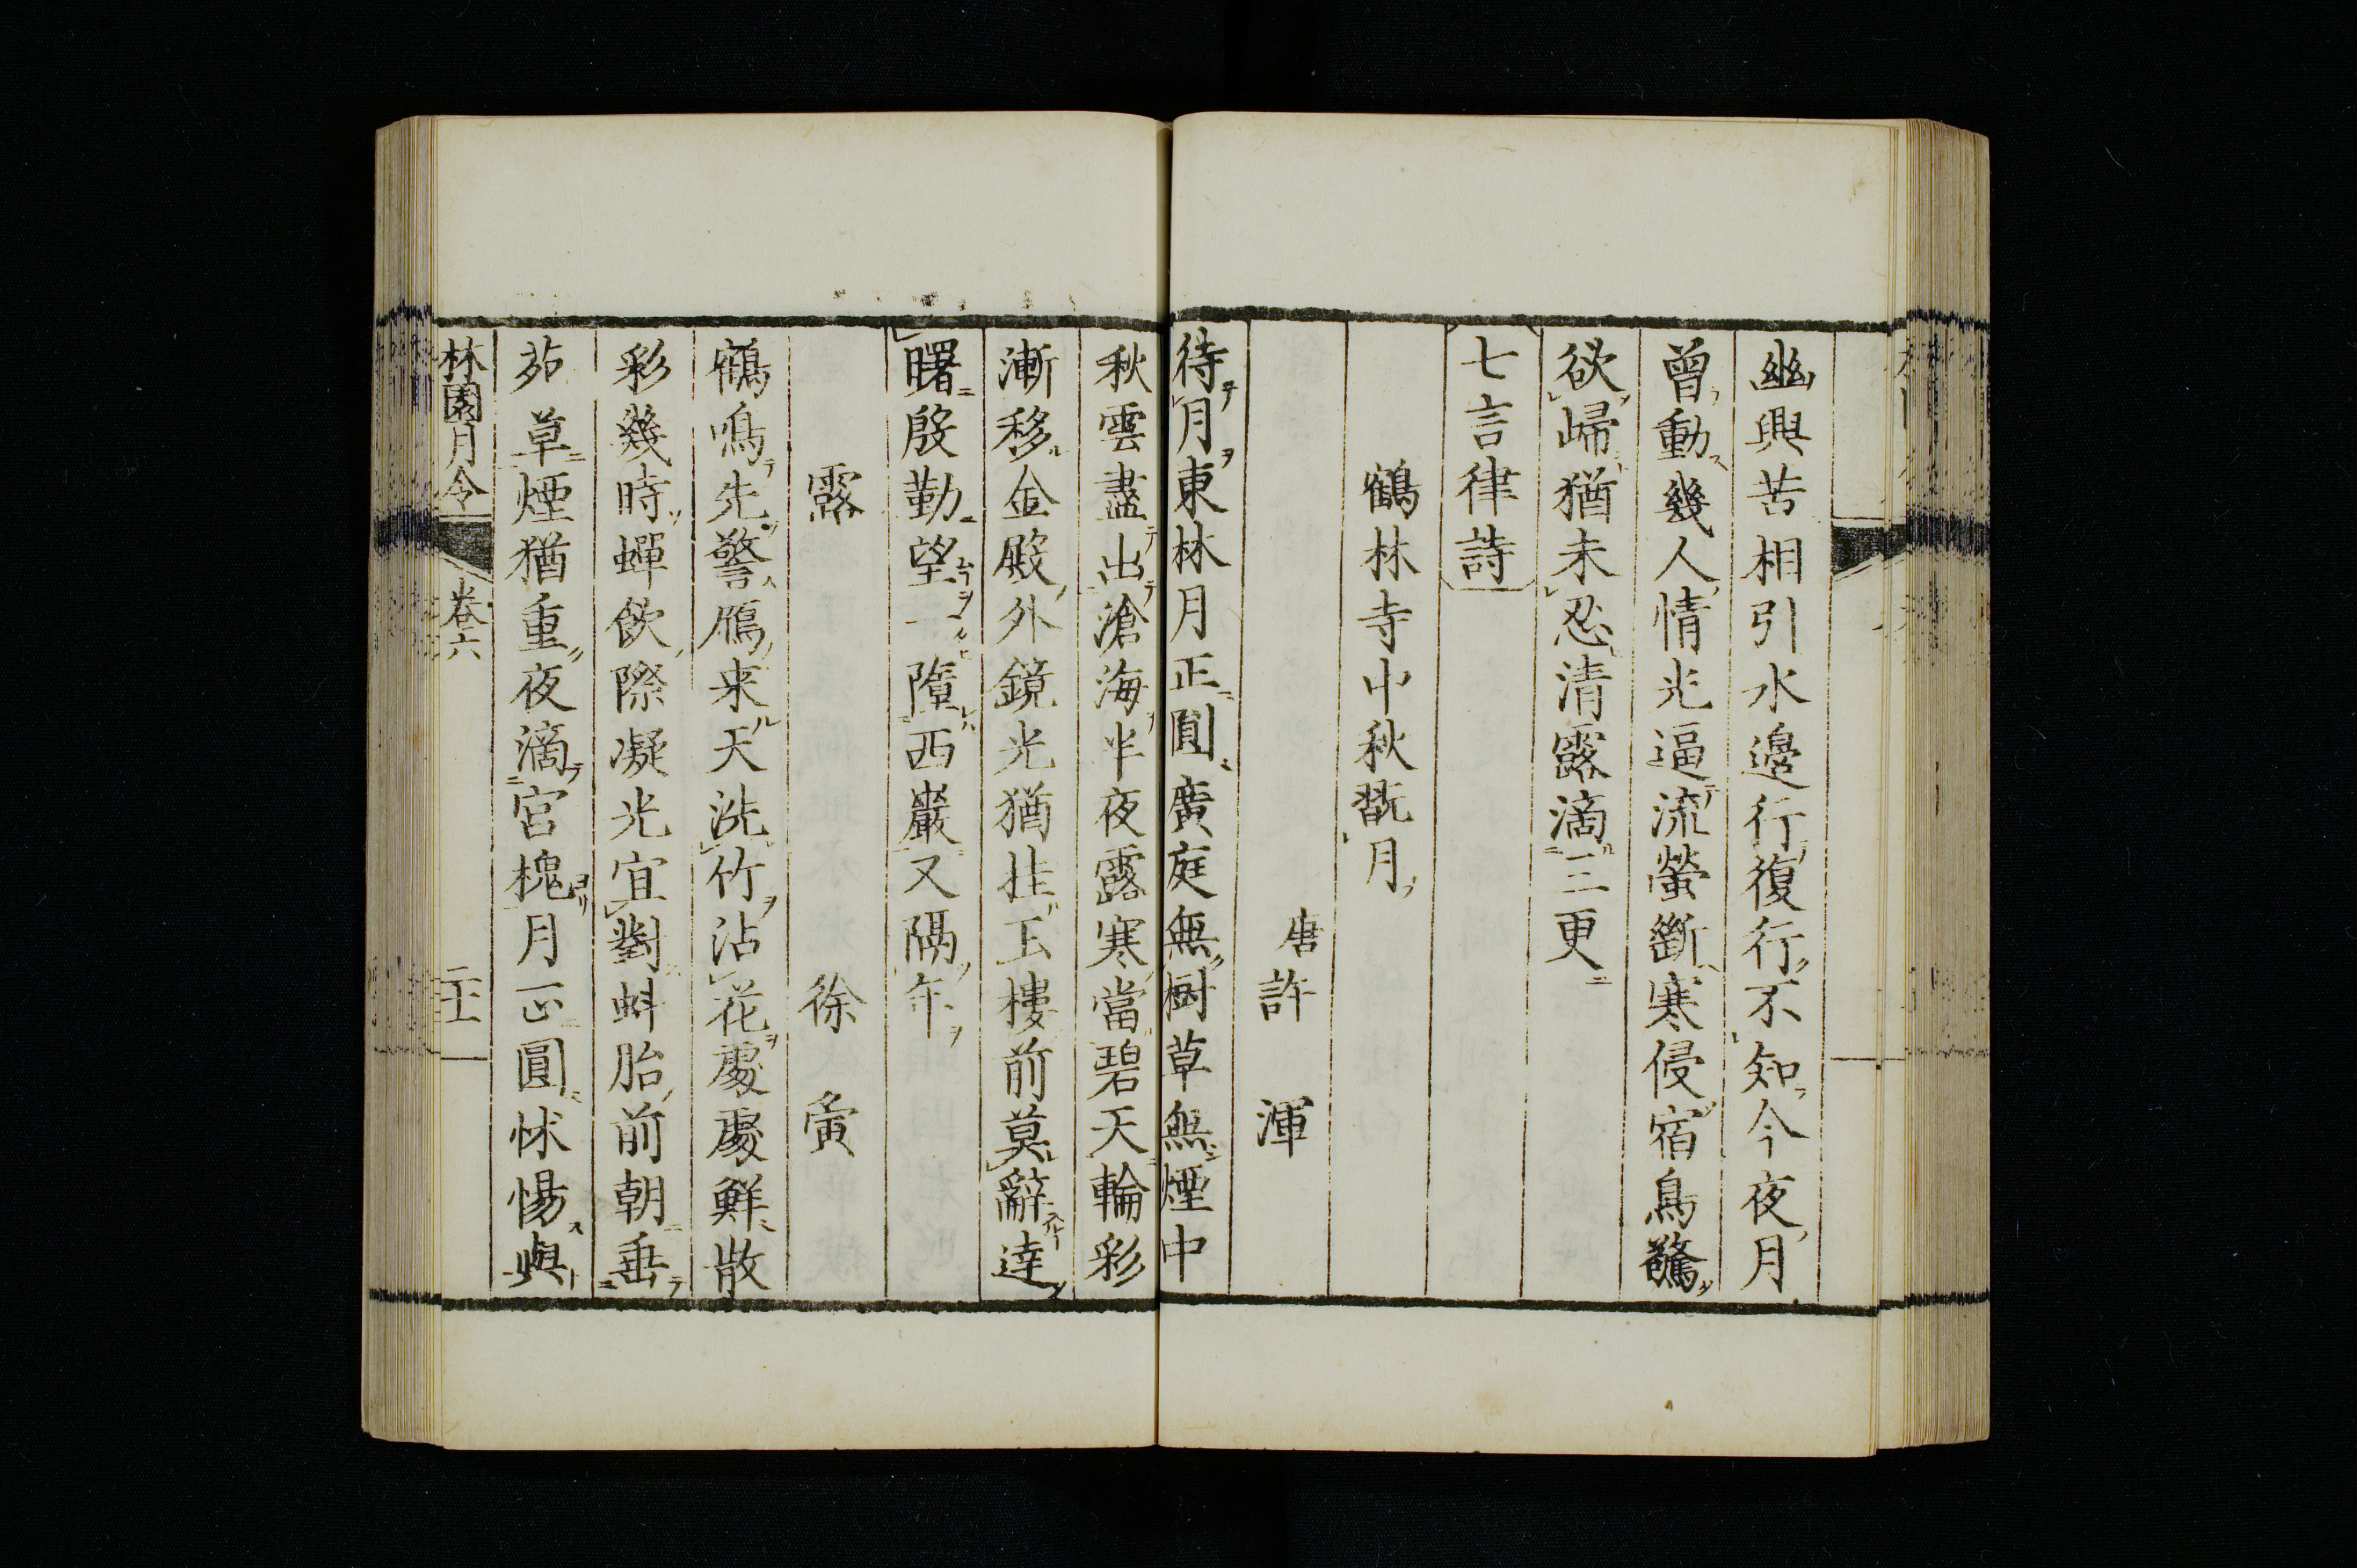 幽興苦相引水邊行復行不知今夜月
曾動幾人情光逼流螢斷寒侵宿鳥驚
欲歸猶未忍清露滴三更
七言律詩
鶴林寺中秋翫月
唐許渾
待月東林月正圓廣庭無樹草無煙中
秋雲盡出滄海半夜露寒當碧天輪彩
漸移金殿外鏡光猶挂玉樓前莫辭達
曙殷勤望一墮西巖又隔年
露 徐寅
鶴鳴先警鴈来天洗竹沾花處處鮮散
彩幾時蟬飲際凝光宜對蚌胎前朝垂
茆草煙猶重夜滴宮槐月正圓怵惕與
林園月令 卷六